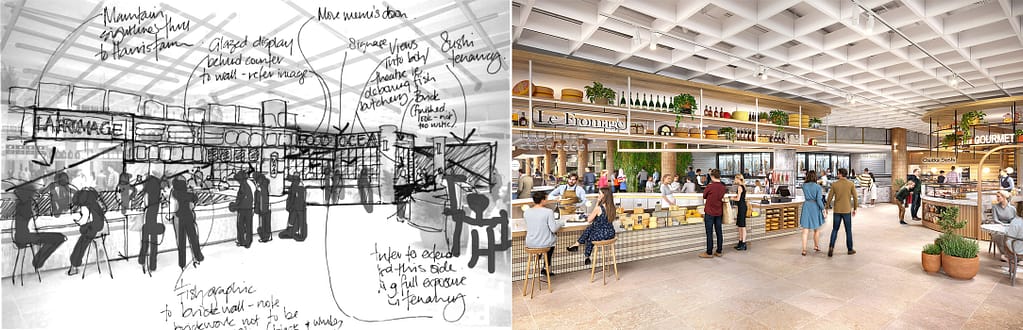 Maintain
sightlines thru
to Harris Farm
Glazed display
behind counter
to wall - refer image
Move menu's down
Signage
Views
into
theatre ie
deboning fish
butchery
Brick
finished
look - not
too rustic
Sushi
tenancy
LA FROMAGE
FOOD OCEAN
Timber to extend
to this side
full exposure
tenancy
Fish graphic
to brick wall - note
brickwork not to be
Le Fromage
GOURMET